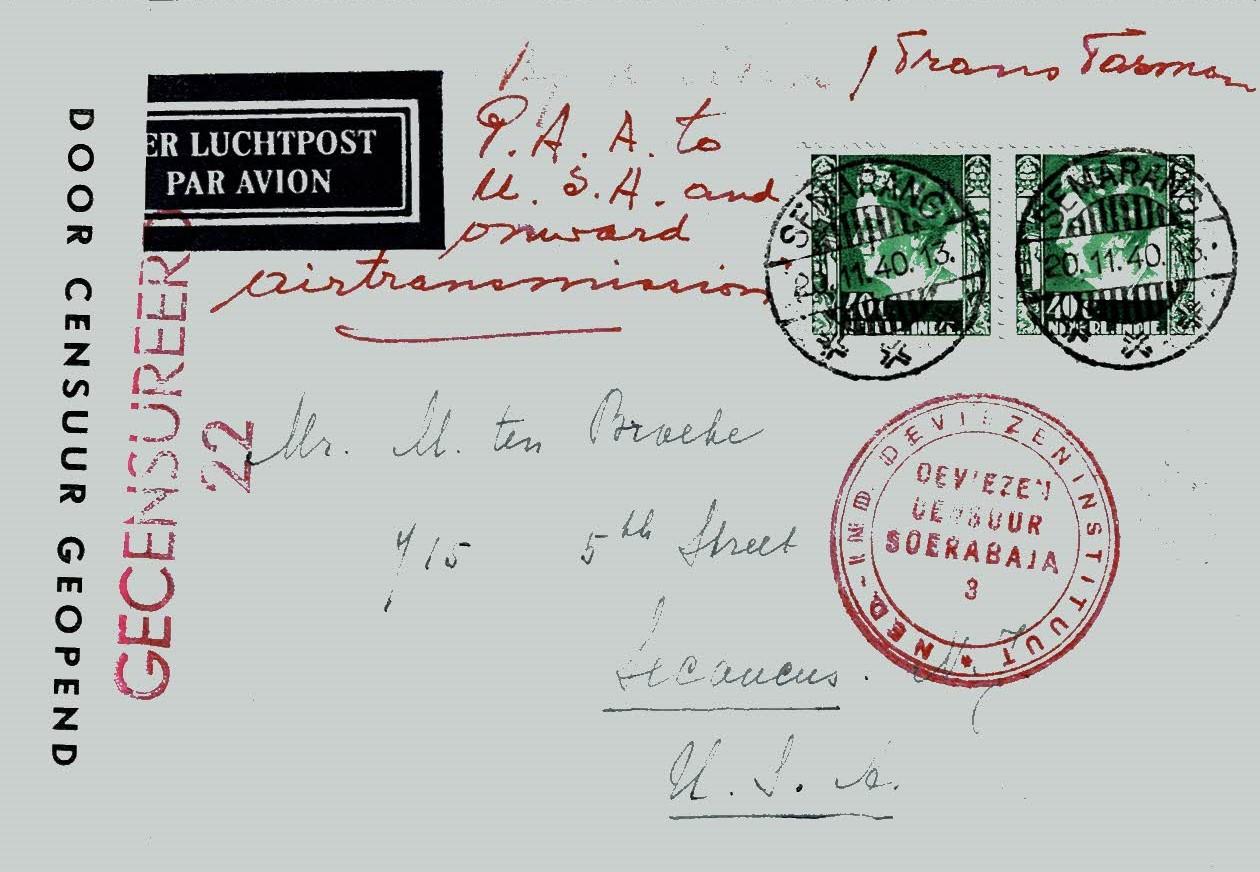 Trans Tasman
P.A.A. to
U.S.A. and
onward
airtransmission
ER LUCHTPOST
PAR AVION
DOOR CENSUUR GEOPEND
GECENSUREERD
22
SEMARANG
20.11.40.13.
40
SEMARANG
20.11.40.13.
40
NED.-IND. DEVIEZENINSTITUUT *
DEVIEZEN
CENSUUR
SOERABAJA
3
Mr. M. ten Broeke
715 5th Street
Secaucus. N.J.
U.S.A.